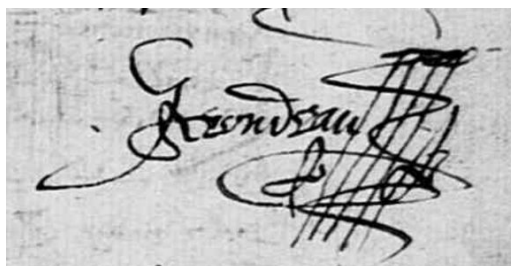 G Rondeau